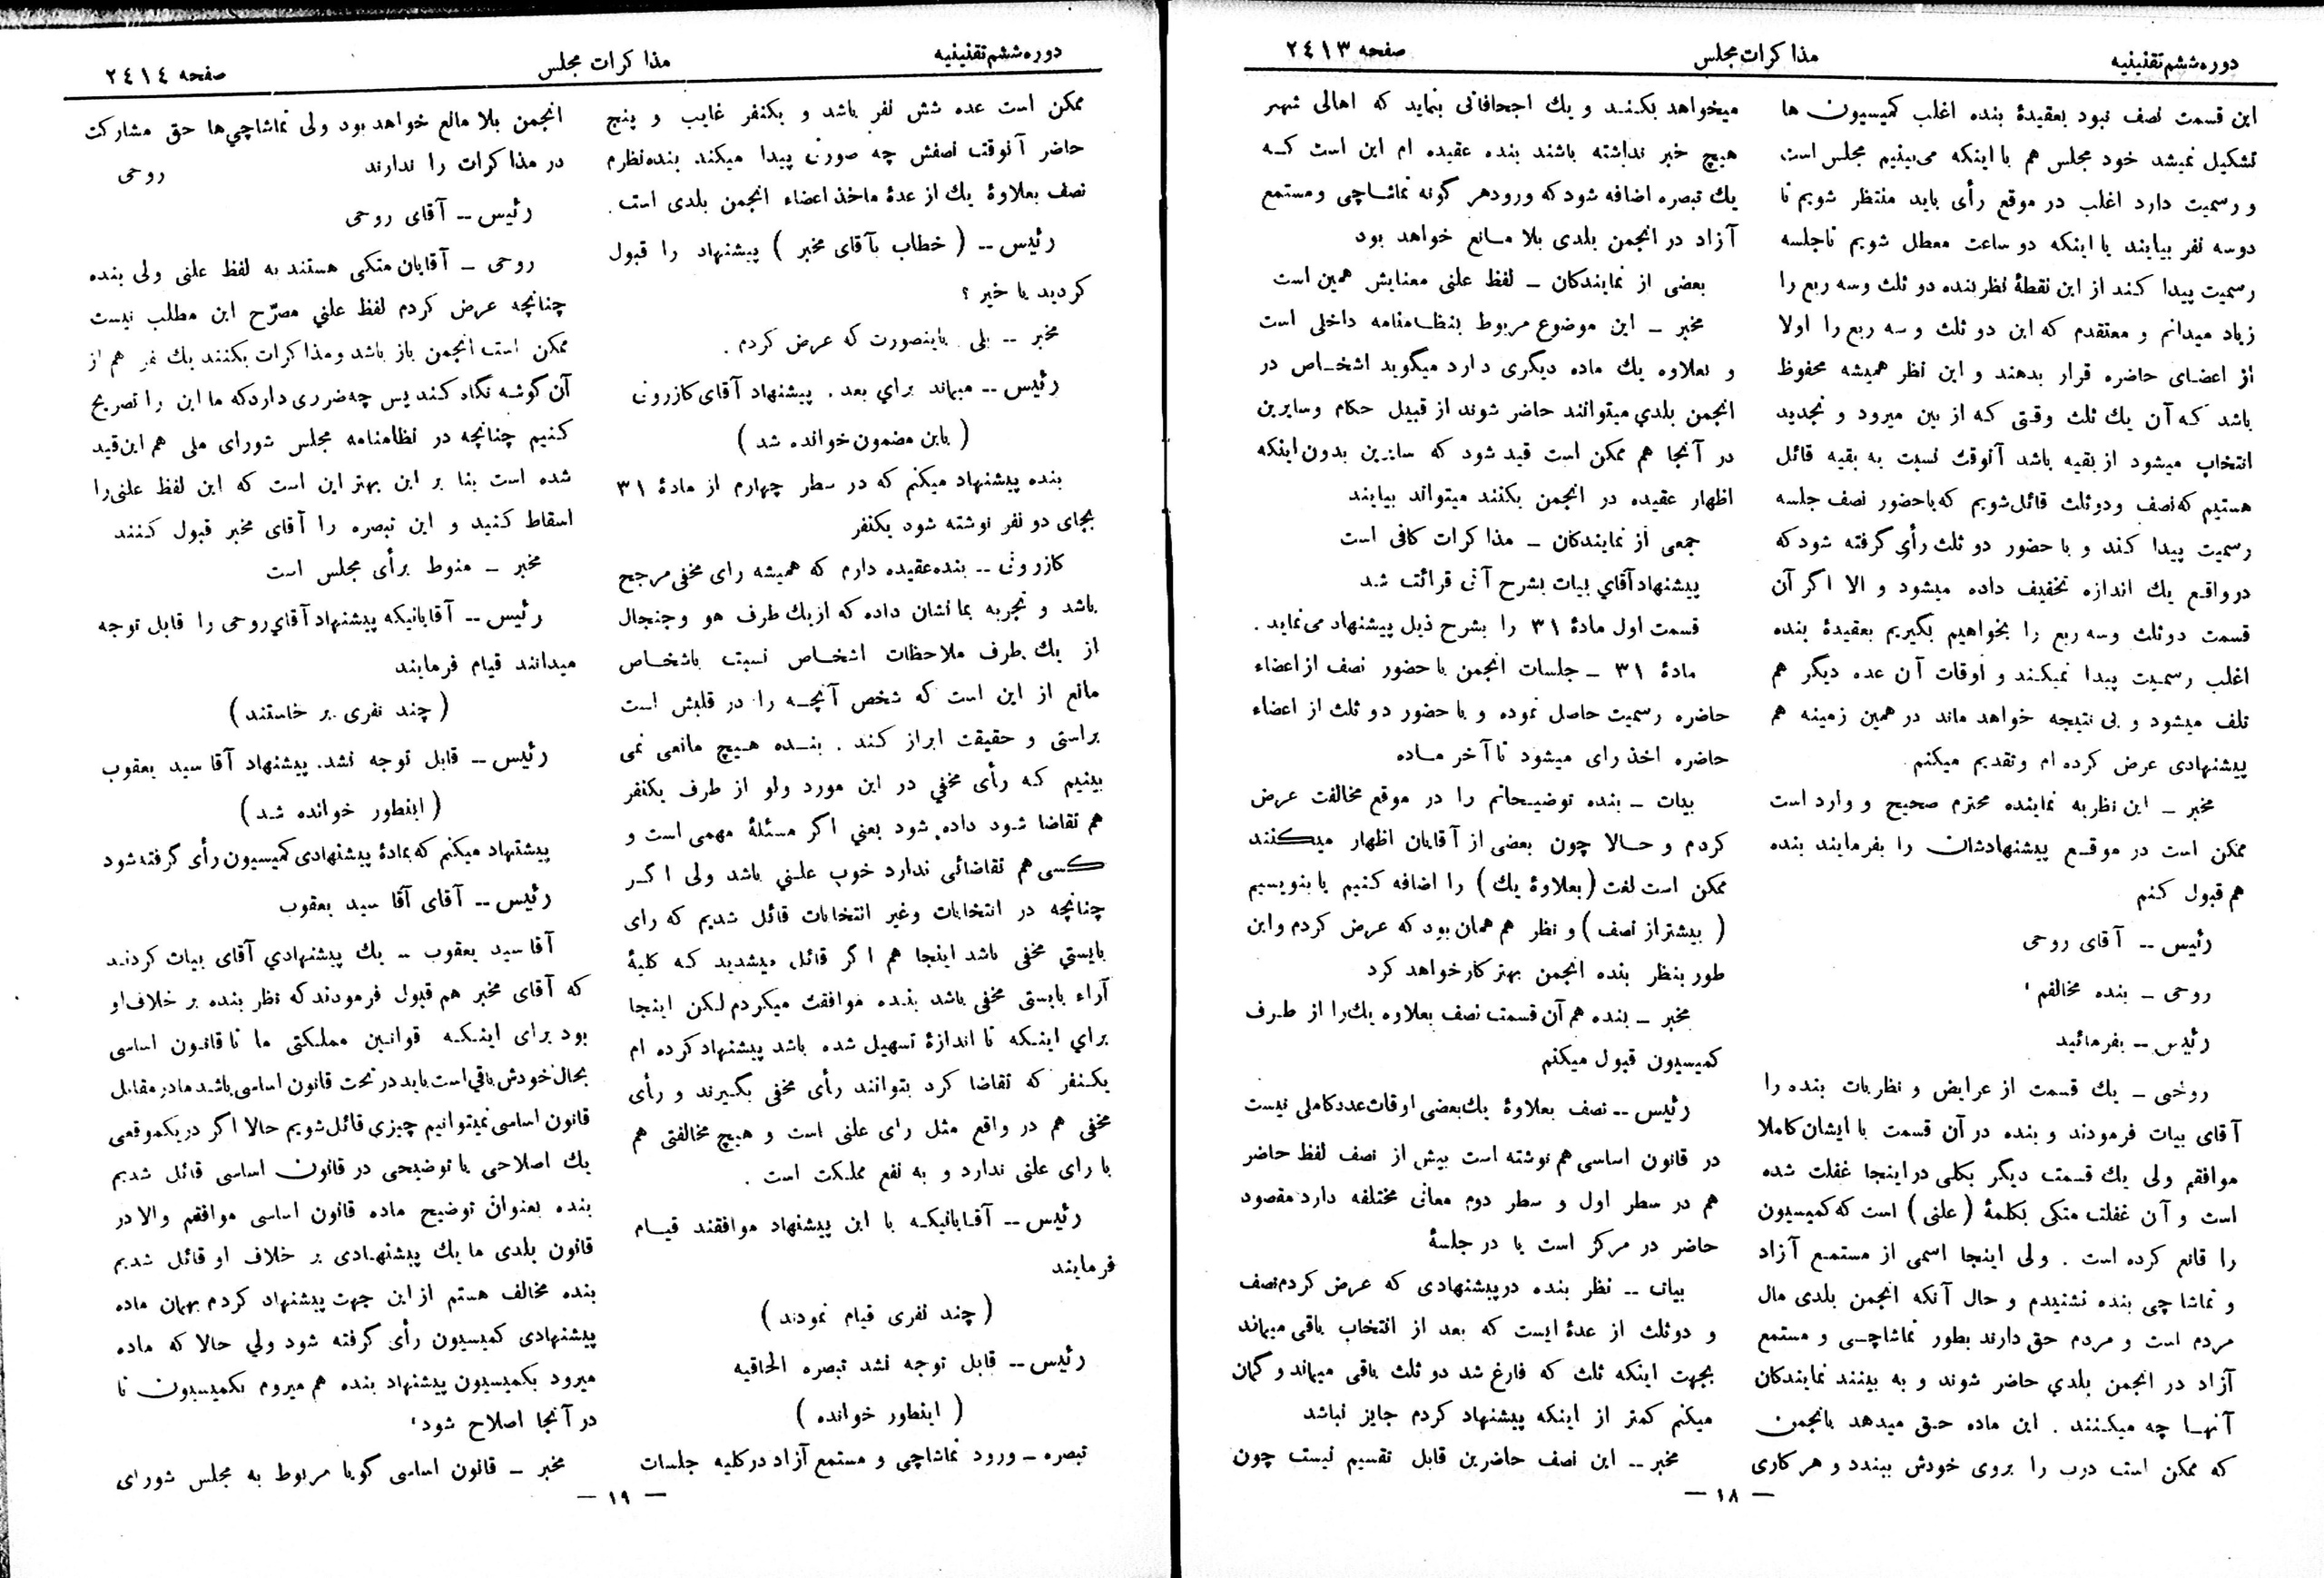 دوره ششم تقنینیه
مذاکرات مجلس
صفحه ۲۴۱۳
این قسمت نصف نبود بعقیدهٔ بنده اغلب کمیسیون ها
تشکیل نمیشد خود مجلس هم با اینکه می‌بینیم مجلس است
و رسمیت دارد اغلب در موقع رأی باید منتظر شویم تا
دوسه نفر بیایند یا اینکه دو ساعت معطل شویم تاجلسه
رسمیت پیدا کند از این نقطهٔ نظر بنده دو ثلث وسه ربع را
زیاد میدانم و معتقدم که این دو ثلث و سه ربع را اولا
از اعضای حاضره قرار بدهند و این نظر همیشه محفوظ
باشد که آن یك ثلث وقتی که از بین میرود و تجدید
انتخاب میشود از بقیه باشد آنوقت نسبت به بقیه قائل
هستیم که نصف ودوثلث قائل شویم که با حضور نصف جلسه
رسمیت پیدا کند و با حضور دو ثلث رأی گرفته شود که
درواقع یك اندازه تخفیف داده میشود و الا اگر آن
قسمت دوثلث وسه ربع را بخواهیم بگیریم بعقیدهٔ بنده
اغلب رسمیت پیدا نمیکند و اوقات آن عده دیگر هم
تلف میشود و بی نتیجه خواهد ماند در همین زمینه هم
پیشنهادی عرض کرده ام وتقدیم میکنم
مخبر ـ این نظریه نماینده محترم صحیح و وارد است
ممکن است در موقع پیشنهادشان را بفرمایند بنده
هم قبول کنم
رئیس ـ آقای روحی
روحی ـ بنده مخالفم
رئیس ـ بفرمائید
روحی ـ یك قسمت از عرایض و نظریات بنده را
آقای بیات فرمودند و بنده در آن قسمت با ایشان کاملا
موافقم ولی یك قسمت دیگر بکلی در اینجا غفلت شده
است و آن غفلت متکی بکلمهٔ (علنی) است که کمیسیون
را قانع کرده است . ولی اینجا اسمی از مستمع آزاد
و تماشاچی بنده نشنیدم و حال آنکه انجمن بلدی مال
مردم است و مردم حق دارند بطور تماشاچی و مستمع
آزاد در انجمن بلدی حاضر شوند و به بینند نمایندگان
آنها چه میکنند . این ماده حق میدهد بانجمن
که ممکن است درب را بروی خودش ببندد و هر کاری
میخواهد بکند و یك اجحافاتی بنماید که اهالی شهر
هیچ خبر نداشته باشند بنده عقیده ام این است که
یك تبصره اضافه شود که ورودهر گونه تماشاچی ومستمع
آزاد در انجمن بلدی بلا مانع خواهد بود
بعضی از نمایندکان ـ لفظ علنی معنایش همین است
مخبر ـ این موضوع مربوط بنظامنامه داخلی است
و بعلاوه یك ماده دیگری دارد میگوید اشخاص در
انجمن بلدي میتوانند حاضر شوند از قبیل حکام وسایرین
در آنجا هم ممکن است قید شود که سایرین بدون اینکه
اظهار عقیده در انجمن بکنند میتواند بیایند
جمعی از نمایندکان ـ مذاکرات کافی است
پیشنهاد آقاي بیات بشرح آتی قرائت شد
قسمت اول مادهٔ ۳۱ را بشرح ذیل پیشنهاد می‌نماید .
مادهٔ ۳۱ ـ جلسات انجمن با حضور نصف از اعضاء
حاضره رسمیت حاصل نموده و با حضور دو ثلث از اعضاء
حاضره اخذ رای میشود تا آخر ماده
بیات ـ بنده توضیحاتم را در موقع مخالفت عرض
کردم و حالا چون بعضی از آقایان اظهار میکنند
ممکن است لغت (بعلاوهٔ یك) را اضافه کنیم یا بنویسیم
( بیشتر از نصف ) و نظر هم همان بود که عرض کردم و این
طور بنظر بنده انجمن بهتر کار خواهد کرد
مخبر ـ بنده هم آن قسمت نصف بعلاوه یك را از طرف
کمیسیون قبول میکنم
رئیس ـ نصف بعلاوهٔ یك بعضی اوقات عدد کاملی نیست
در قانون اساسی هم نوشته است بیش از نصف لفظ حاضر
هم در سطر اول و سطر دوم معانی مختلفه دارد مقصود
حاضر در مرکز است یا در جلسهٔ
بیات ـ نظر بنده در پیشنهادی که عرض کردم نصف
و دوثلث از عدهٔ ایست که بعد از انتخاب باقی میماند
بجهت اینکه ثلث که فارغ شد دو ثلث باقی میماند و گمان
میکنم کمتر از اینکه پیشنهاد کردم جایز نباشد
مخبر ـ این نصف حاضرین قابل تقسیم نیست چون
— ۱۸ —
دوره ششم تقنینیه
مذاکرات مجلس
صفحه ۲۴۱۴
ممکن است عده شش نفر باشد و یکنفر غایب و پنج
حاضر آنوقت نصفش چه صورت پیدا میکند بنده نظرم
نصف بعلاوهٔ یك از عدهٔ ماخذ اعضاء انجمن بلدی است .
رئیس ـ ( خطاب بآقای مخبر ) پیشنهاد را قبول
کردید یا خیر ؟
مخبر ـ بلی باینصورت که عرض کردم .
رئیس ـ میماند براي بعد . پیشنهاد آقای کازرونی
( باین مضمون خوانده شد )
بنده پیشنهاد میکنم که در سطر چهارم از مادهٔ ۳۱
بجای دو نفر نوشته شود یکنفر
کازرونی ـ بنده عقیده دارم که همیشه رای مخفی مرجح
باشد و تجربه بما نشان داده که از یك طرف هو و جنجال
از یك طرف ملاحظات اشخاص نسبت باشخاص
مانع از این است که شخص آنچه را در قلبش است
براستی و حقیقت ابراز کند . بنده هیچ مانعی نمی
بینیم که رأی مخفي در این مورد ولو از طرف یکنفر
هم تقاضا شود داده شود یعني اگر مسئلهٔ مهمی است و
کسی هم تقاضائی ندارد خوب علنی باشد ولی اگر
چنانچه در انتخابات وغیر انتخابات قائل شدیم که رای
بایستي مخفی باشد اینجا هم اگر قائل میشدید که کلیهٔ
آراء بایستی مخفی باشد بنده موافقت میکردم لکن اینجا
براي اینکه تا اندازهٔ تسهیل شده باشد پیشنهاد کرده ام
یکنفر که تقاضا کرد بتوانند رأی مخفی بگیرند و رأی
مخفی هم در واقع مثل رای علنی است و هیچ مخالفتی هم
با رای علنی ندارد و به نفع مملکت است .
رئیس ـ آقایانیکه با این پیشنهاد موافقند قیام
فرمایند
( چند نفری قیام نمودند )
رئیس ـ قابل توجه نشد تبصره الحاقیه
( اینطور خوانده )
تبصره ـ ورود تماشاچی و مستمع آزاد در کلیه جلسات
انجمن بلا مانع خواهد بود ولی تماشاچی‌ها حق مشارکت
در مذاکرات را ندارند روحی
رئیس ـ آقای روحی
روحی ـ آقایان متکی هستند به لفظ علنی ولی بنده
چنانچه عرض کردم لفظ علني مصرّح این مطلب نیست
ممکن است انجمن باز باشد ومذاکرات بکنند یك هم از
آن گوشه نگاه کند پس چه ضرری دارد که ما این را تصریح
کنیم چنانچه در نظامنامه مجلس شورای ملی هم این قید
شده است بنا بر این بهتر این است که این لفظ علنی را
اسقاط کنید و این تبصره را آقای مخبر قبول کنند
مخبر ـ منوط برأی مجلس است
رئیس ـ آقایانیکه پیشنهاد آقاي روحی را قابل توجه
میدانند قیام فرمایند
( چند نفری بر خاستند )
رئیس ـ قابل توجه نشد. پیشنهاد آقا سید یعقوب
( اینطور خوانده شد )
پیشنهاد میکنم که بمادهٔ پیشنهادی کمیسیون رأی گرفته شود
رئیس ـ آقای آقا سید یعقوب
آقا سید یعقوب ـ یك پیشنهادي آقای بیات کردند
که آقای مخبر هم قبول فرمودند که نظر بنده بر خلاف او
بود برای اینکه قوانین مملکتی ما تا قانون اساسی
بحال خودش باقی است باید در تحت قانون اساسی باشد ما در مقابل
قانون اساسی نمیتوانیم چیزی قائل شویم حالا اگر در یکموقعی
یك اصلاحی یا توضیحی در قانون اساسی قائل شدیم
بنده بعنوان توضیح ماده قانون اساسی موافقم والا در
قانون بلدی ما یك پیشنهادی بر خلاف او قائل شدیم
بنده مخالف هستم از این جهت پیشنهاد کردم بهمان ماده
پیشنهادی کمیسیون رأی گرفته شود ولي حالا که ماده
میرود بکمیسیون پیشنهاد بنده هم میروم بکمیسیون تا
در آنجا اصلاح شود
مخبر ـ قانون اساسی گویا مربوط به مجلس شورای
— ۱۹ —